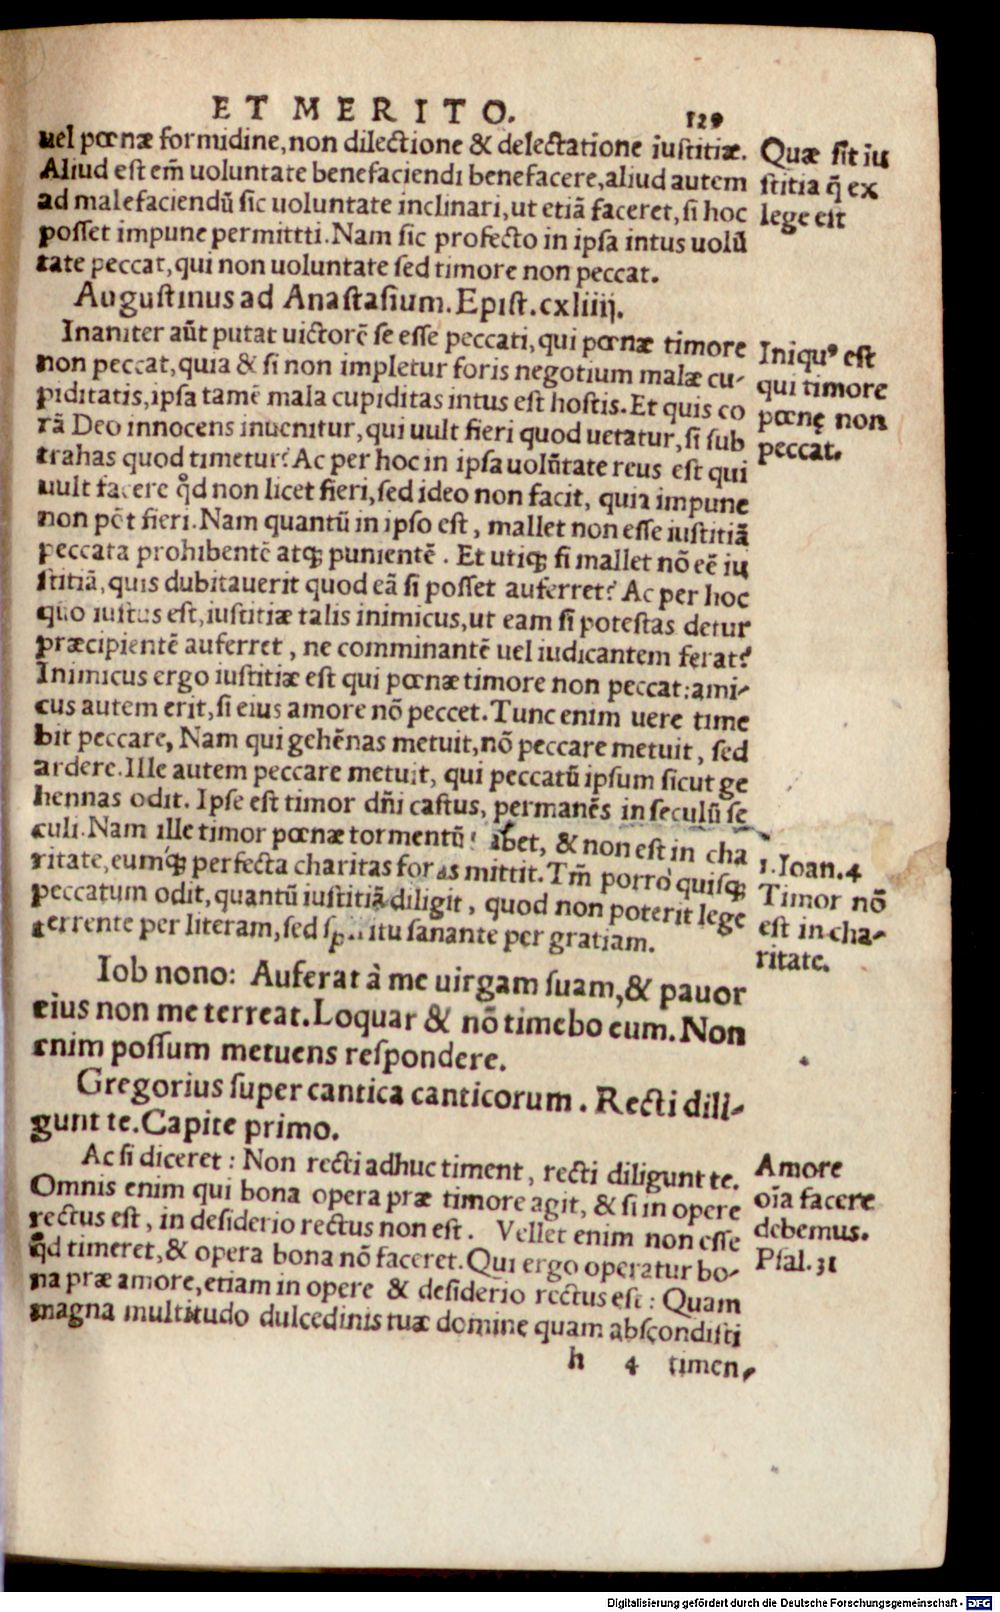 ET MERITO. 129
uel pœnæ formidine, non dilectione & delectatione iustitiæ.
Aliud est em̃ uoluntate benefaciendi benefacere, aliud autem
ad malefaciendū sic uoluntate inclinari, ut etiā faceret, si hoc
posset impune permittti. Nam sic profecto in ipsa intus uolū
tate peccat, qui non uoluntate sed timore non peccat.
Quæ sit iu
stitia q̃ ex
lege est
Augustinus ad Anastasium. Epist. cxliiij.
Inaniter aūt putat uictorē se esse peccati, qui pœnæ timore
non peccat, quia & si non impletur foris negotium malæ cu-
piditatis, ipsa tamē mala cupiditas intus est hostis. Et quis co
rā Deo innocens inuenitur, qui uult fieri quod uetatur, si sub
trahas quod timetur? Ac per hoc in ipsa uolūtate reus est qui
uult facere qd̃ non licet fieri, sed ideo non facit, quia impune
non pōt fieri. Nam quantū in ipso est, mallet non esse iustitiā
peccata prohibentē atq; punientē. Et utiq; si mallet nō eē iu
stitiā, quis dubitauerit quod eā si posset auferret? Ac per hoc
quo iustus est, iustitiæ talis inimicus, ut eam si potestas detur
præcipientē auferret, ne comminantē uel iudicantem ferat?
Inimicus ergo iustitiæ est qui pœnæ timore non peccat: ami-
cus autem erit, si eius amore nō peccet. Tunc enim uere time
bit peccare, Nam qui gehēnas metuit, nō peccare metuit, sed
ardere. Ille autem peccare metuit, qui peccatū ipsum sicut ge
hennas odit. Ipse est timor dñi castus, permanēs in seculū se
culi. Nam ille timor pœnæ tormentū habet, & non est in cha
ritate, eumq́; perfecta charitas foras mittit. Tm̃ porrò quisq;
peccatum odit, quantū iustitiā diligit, quod non poterit lege
terrente per literam, sed spiritu sanante per gratiam.
Iniqu⁹ est
qui timore
pœnę non
peccat.
1. Ioan. 4
Timor nō
est in cha-
ritate.
Iob nono: Auferat à me uirgam suam, & pauor
eius non me terreat. Loquar & nō timebo eum. Non
enim possum metuens respondere.
Gregorius super cantica canticorum. Recti dili-
gunt te. Capite primo.
Ac si diceret: Non recti adhuc timent, recti diligunt te.
Omnis enim qui bona opera præ timore agit, & si in opere
rectus est, in desiderio rectus non est. Vellet enim non esse
qd̃ timeret, & opera bona nō faceret. Qui ergo operatur bo-
na præ amore, etiam in opere & desiderio rectus est: Quam
magna multitudo dulcedinis tuæ domine quam abscondisti
Amore
oīa facere
debemus.
Psal. 31
h 4 timen-
Digitalisierung gefördert durch die Deutsche Forschungsgemeinschaft - DFG